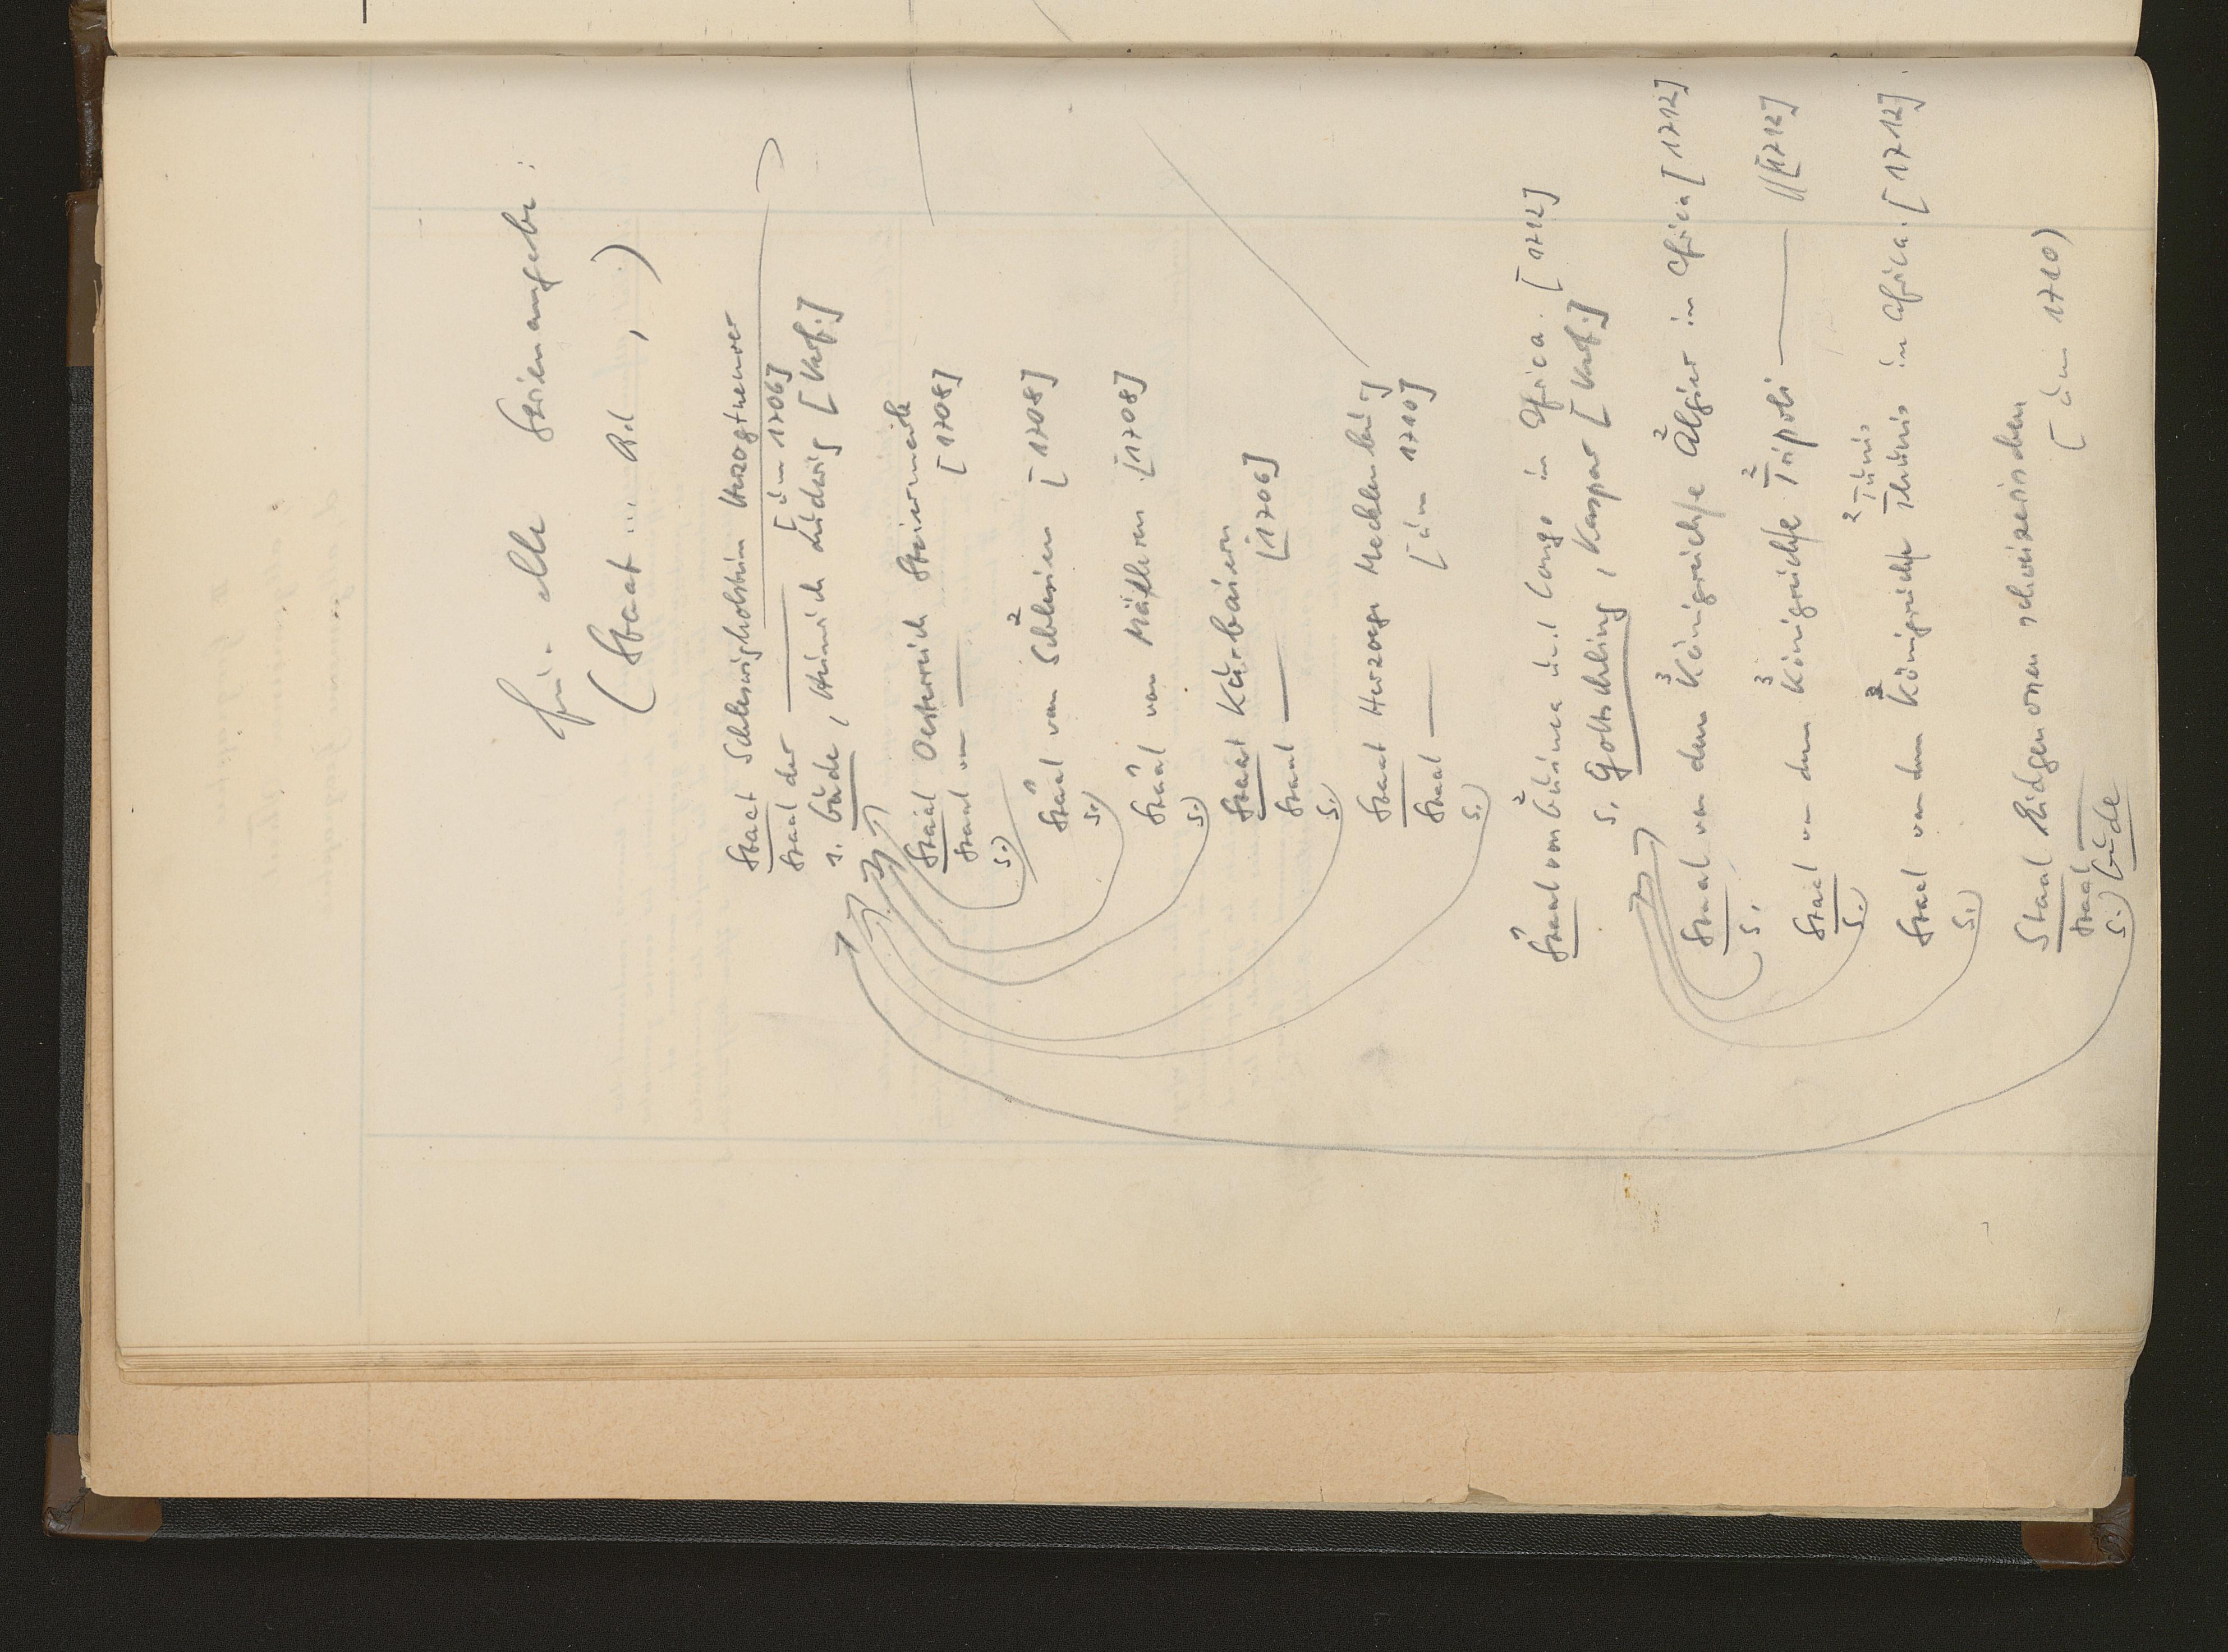 für alle Serienangabe:
(Staat ... Bd , )
Staat Schleswigholstein Herzogtuemer
Staat der ——— [um 1706]
s. Gude, Heinrich Ludwig [Verf.]
Staat Oesterreich Steiermark
Staat von ——— [1708]
s.)
Staat von Schlesien [1708]
s.)
Staat von Mähren [1708]
s.)
Staat Kurbaiern
Staat ——— [1706]
s.)
Staat Herzoge Mecklenburg
Staat ——— [um 1710]
s.)
Staat von Guinea und Congo in Africa. [1712]
s. Gottschling, Kaspar [Verf.]
Staat von dem Königreiche Algier in Africa [1712]
s.
Staat von dem Königreiche Tripoli ——— [1712]
s.)
Tunis
Staat von dem Königreiche Thunis in Africa. [1712]
s.)
Staat Eidgenossen schweizerischen
Staat ——— [um 1710)
s.) Gude